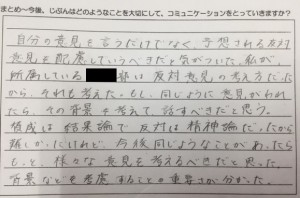 まとめ～今後、じぶんはどのようなことを大切にして、コミュニケーションをとっていきますか？
自分の意見を言うだけでなく、予想される反対
意見も配慮していうべきだと気がついた。私が、
所属している 部は反対意見の考え方だった
から、それも考えた。もし、同じように意見がわれ
たら、その背景も考えて、話すべきだと思う。
賛成は結果論で反対は精神論だったから
難しかったけれど、今後同じようなことがあったら
もっと、様々な意見を考えるべきだと思った。
背景なども考慮することの重要さが分かった。